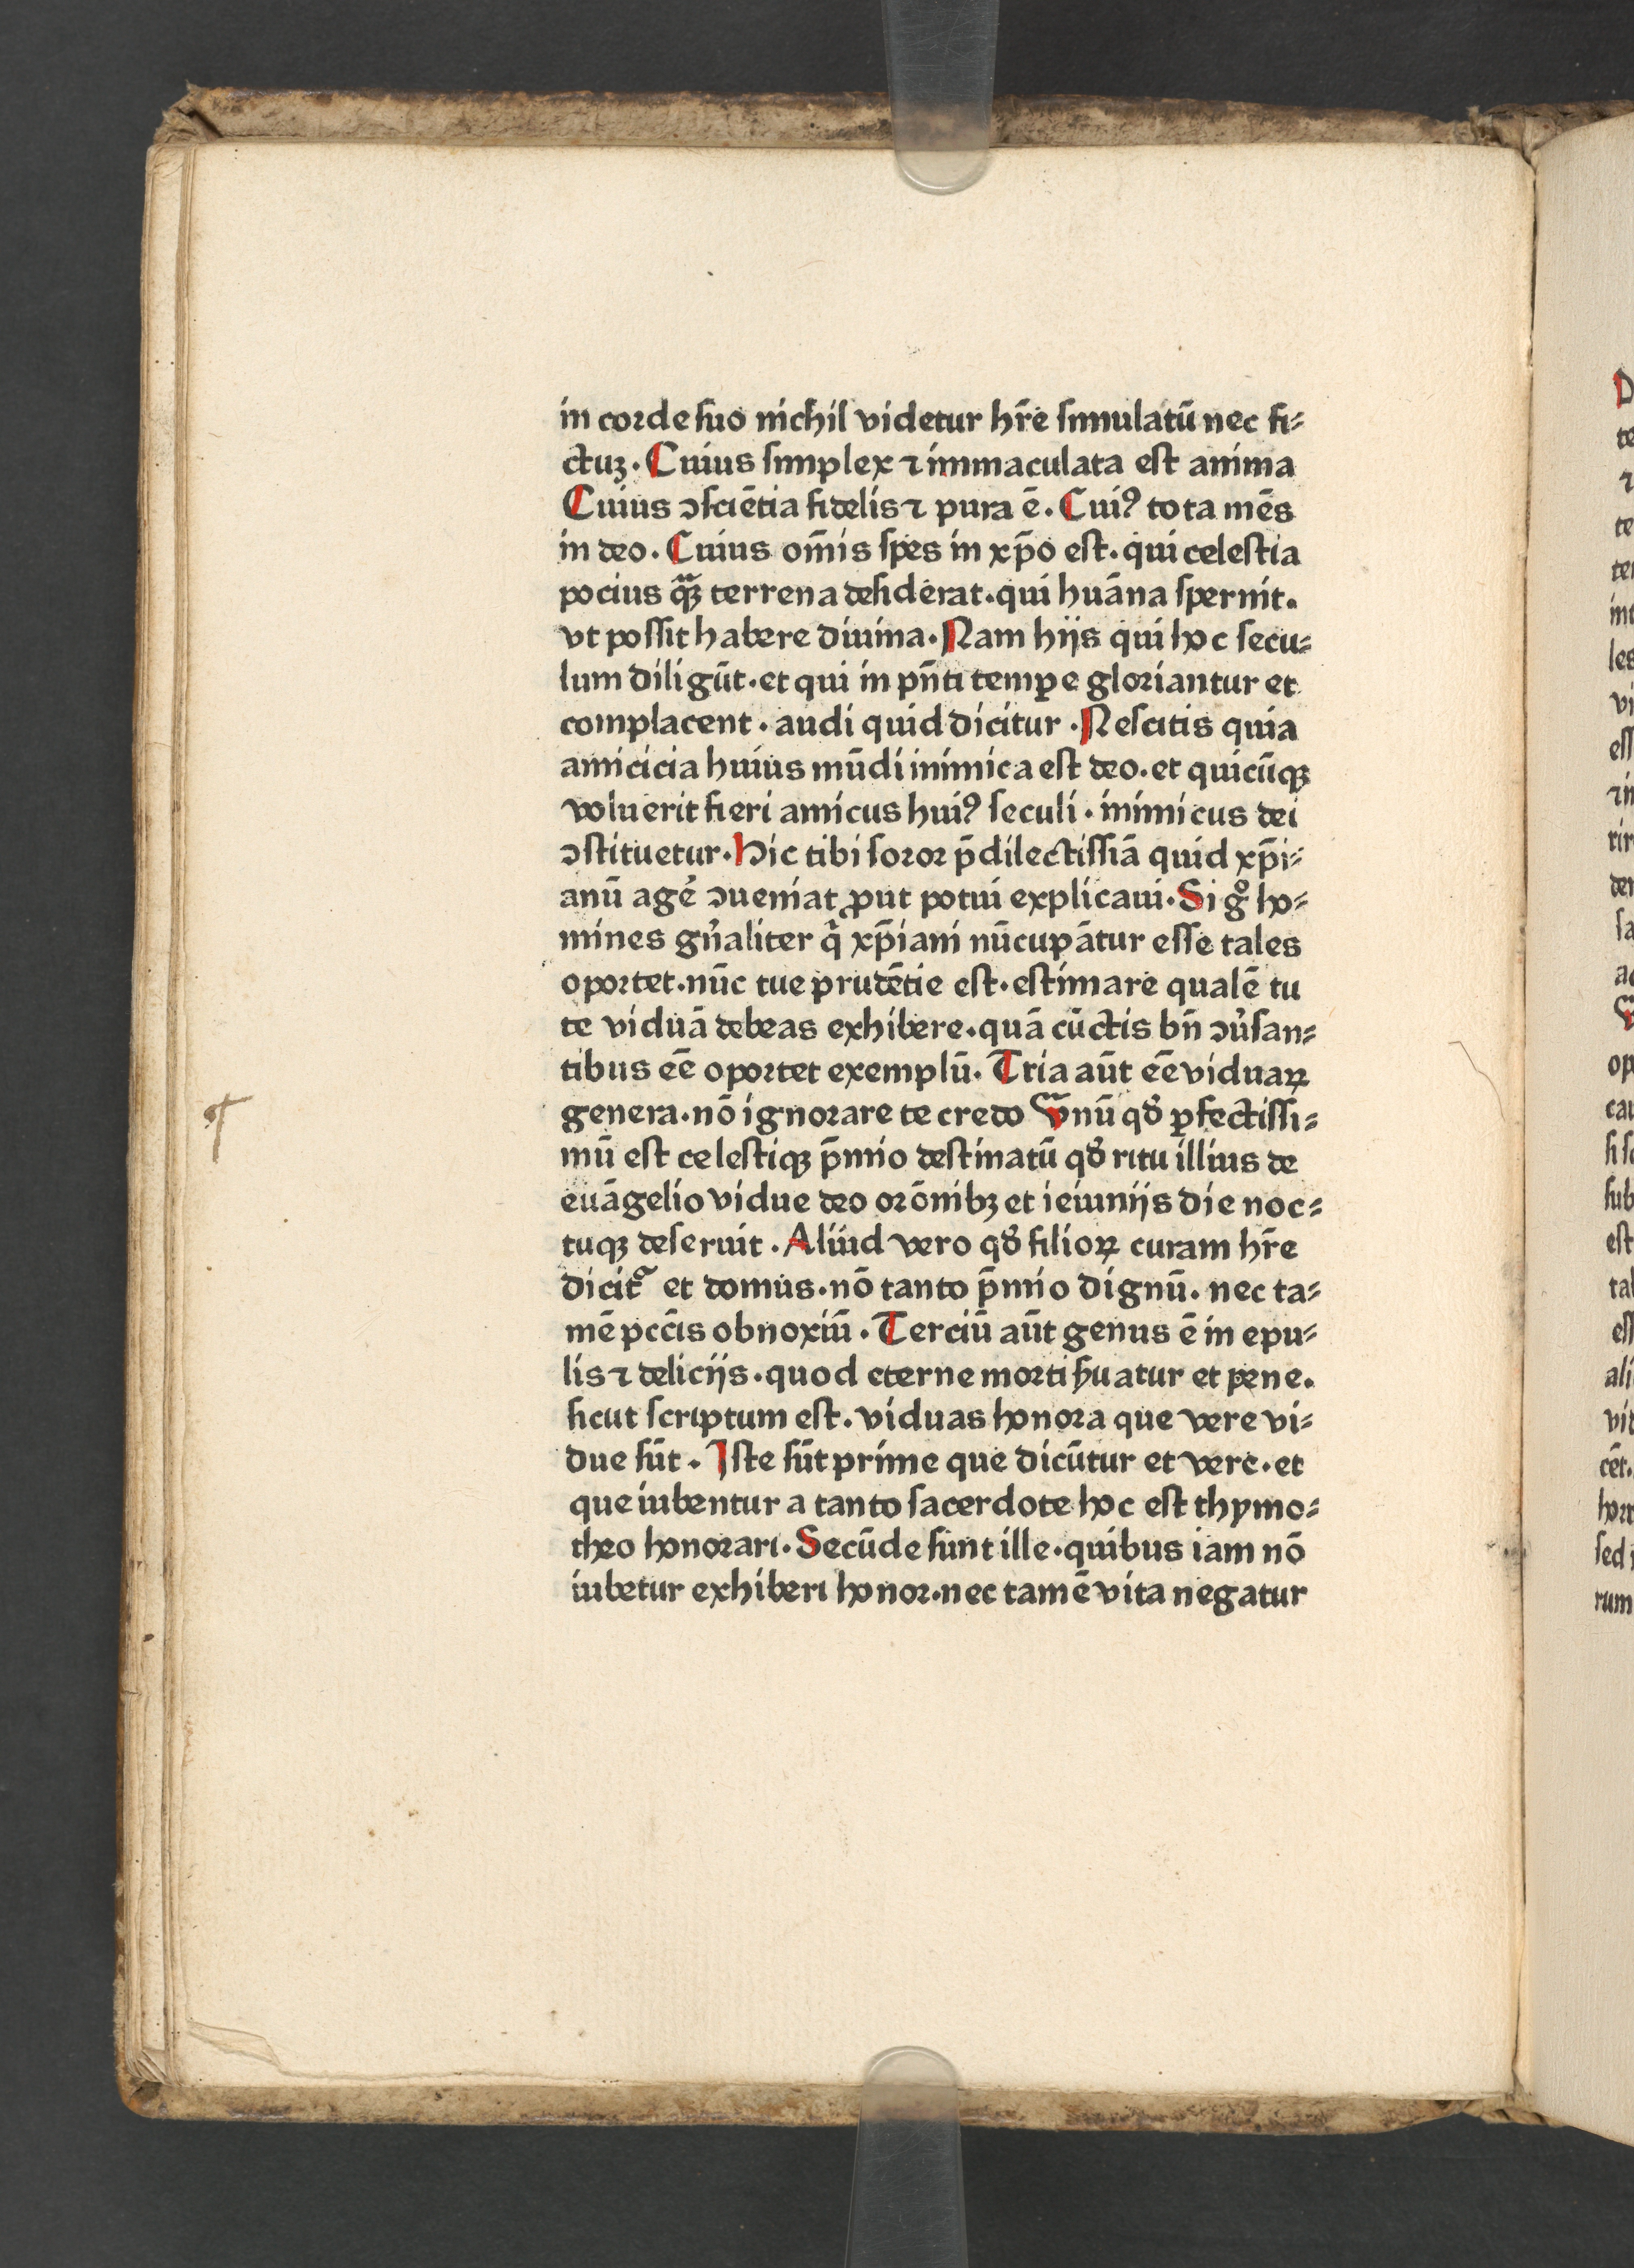 in corde suo nichil videtur hr̄e simulatū nec fi⸗
ctuꝫ. Cuius simplex ⁊ immaculata est anima
Cuius ↄsciētia fidelis ⁊ pura ē. Cuiꝰ tota mēs
in deo. Cuius om̄is spes in xp̄o est. qui celestia
pocius qᷓꝫ terrena desiderat. qui huāna spernit.
vt possit habere diuina. Nam hijs qui hoc secu⸗
lum diligūt. et qui in pn̄ti temꝑe gloriantur et
complacent. audi quid dicitur. Nescitis quia
amicicia huius mūdi inimica est deo. et quicūqꝫ
voluerit fieri amicus huiꝰ seculi. inimicus dei
ↄstituetur. Hic tibi soror p̄dilectissiā quid xp̄i⸗
anū age᷒ ↄueniat ꝓut potui explicaui. Si gͦ ho⸗
mines gn̄aliter qͥ xp̄iani nūcupātur esse tales
oportet. nūc tue prudētie est. estimare qualē tu
te viduā debeas exhibere. quā cūctis bn̄ ↄu᷒san⸗
tibus eē oportet exemplū. Tria aūt eē viduaꝝ
genera. nō ignorare te credo Vnū qd̓ ꝑfectissi⸗
mū est celestiqꝫ p̄mio destinatū qd̓ ritu illius de
euāgelio vidue deo orōnibꝫ et ieiunijs die noc⸗
tuqꝫ deseruit. Aliud vero qd̓ filioꝝ curam hr̄e
dicit᷑ et domus. nō tanto p̄mio dignū. nec ta⸗
mē pcc̄is obnoxiū. Terciū aūt genus ē in epu⸗
lis ⁊ delicijs. quod eterne morti ẜuatur et pene.
sicut scriptum est. viduas honora que vere vi⸗
due sūt. Iste sūt prime que dicūtur et vere. et
que iubentur a tanto sacerdote hoc est thymo⸗
theo honorari. Secūde sunt ille. quibus iam nō
iubetur exhiberi honor. nec tamē vita negatur